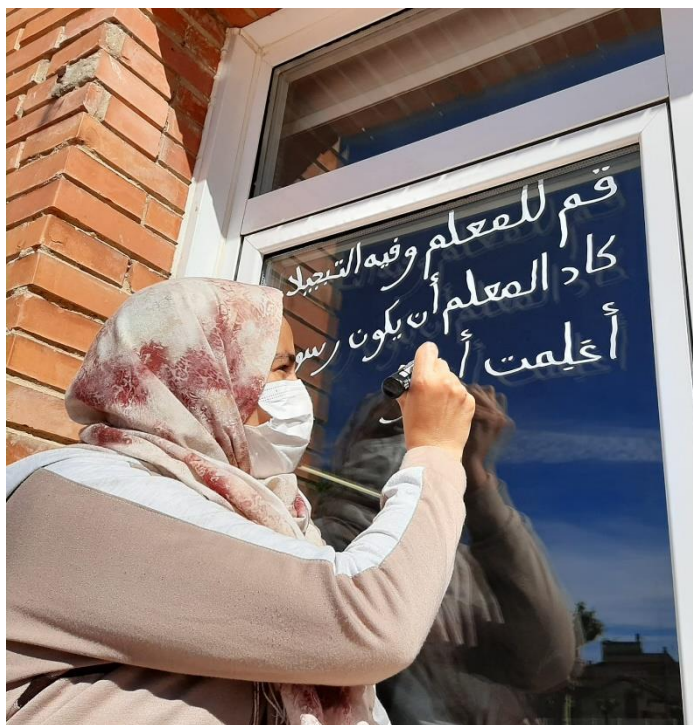 قم للمعلم وفيه التبجيلا
كاد المعلم أن يكون رسو
أعَلِمت أ